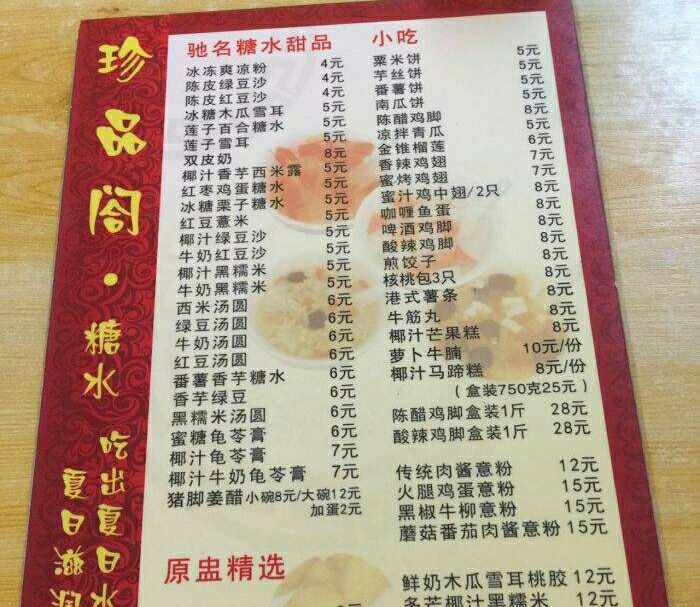 珍品阁·糖水
吃出夏日水
夏日滋润
驰名糖水甜品
冰冻爽凉粉 4元
陈皮绿豆沙 4元
陈皮红豆沙 4元
冰糖木瓜雪耳 5元
莲子百合糖水 5元
莲子雪耳 5元
双皮奶 8元
椰汁香芋西米露 5元
红枣鸡蛋糖水 5元
冰糖栗子糖水 5元
红豆薏米 5元
椰汁绿豆沙 5元
牛奶红豆沙 5元
椰汁黑糯米 5元
牛奶黑糯米 5元
西米汤圆 6元
绿豆汤圆 6元
牛奶汤圆 6元
红豆汤圆 6元
番薯香芋糖水 6元
香芋绿豆 6元
黑糯米汤圆 6元
蜜糖龟苓膏 6元
椰汁龟苓膏 7元
椰汁牛奶龟苓膏 7元
猪脚姜醋 小碗8元/大碗12元
加蛋2元
原盅精选
小吃
粟米饼 5元
芋丝饼 5元
番薯饼 5元
南瓜饼 5元
陈醋鸡脚 8元
凉拌青瓜 5元
金锥榴莲 6元
香辣鸡翅 7元
蜜烤鸡翅 7元
蜜汁鸡中翅/2只 8元
咖喱鱼蛋 8元
啤酒鸡脚 8元
酸辣鸡脚 8元
煎饺子 8元
核桃包3只 8元
港式薯条 8元
牛筋丸 8元
椰汁芒果糕 8元
萝卜牛腩 10元/份
椰汁马蹄糕 8元/份
(盒装750克25元)
陈醋鸡脚盒装1斤 28元
酸辣鸡脚盒装1斤 28元
传统肉酱意粉 12元
火腿鸡蛋意粉 15元
黑椒牛柳意粉 15元
蘑菇番茄肉酱意粉 15元
鲜奶木瓜雪耳桃胶 12元
多芒椰汁黑糯米 12元